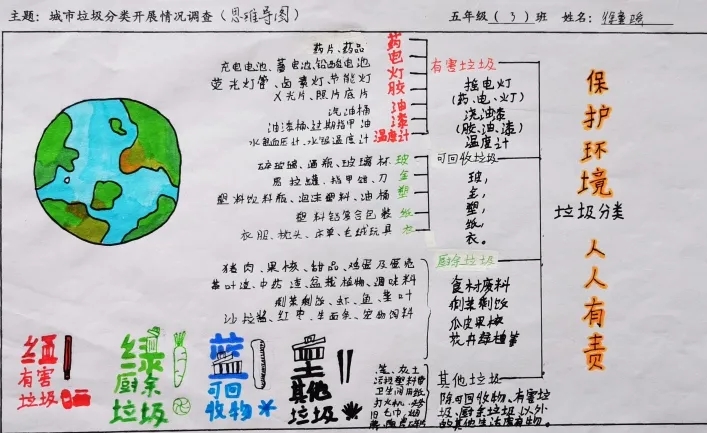 主题：城市垃圾分类开展情况调查（思维导图）
五年级（3）班 姓名：
药片、药品 药
充电电池、蓄电池、铅酸电池 电
荧光灯管、卤素灯、节能灯 灯
X光片、照片底片 胶
汽油桶 油
油漆桶、过期指甲油 漆
水银血压计、水银温度计 温度计
有害垃圾
药电灯
（药、电、灯）
浇油漆
（胶、油、漆）
温度计
碎玻璃、酒瓶、玻璃杯 玻
易拉罐、指甲钳、刀 金
塑料饮料瓶、泡沫塑料、油桶 塑
塑料铝箔合包装 纸
衣服、枕头、床单、毛绒玩具 衣
可回收垃圾
玻，
金，
塑，
纸，
衣。
猪肉、果核、甜品、鸡蛋及蛋壳
茶叶渣、中药渣、盆栽植物、调味料
剩菜剩饭、虾、鱼、菜叶
沙拉酱、红枣、生面条、宠物饲料
厨余垃圾
食材废料
剩菜剩饭
瓜皮果核
花卉绿植等
渣、灰土
污染塑料膜
卫生间用纸
旧毛巾、烟
其他垃圾
除可回收物、有害垃
圾、厨余垃圾以外
的其他生活废弃物。
垃圾分类
保护环境
人人有责
红
有害
垃圾
绿
厨余
垃圾
蓝
可回
收物
黑
其他
垃圾